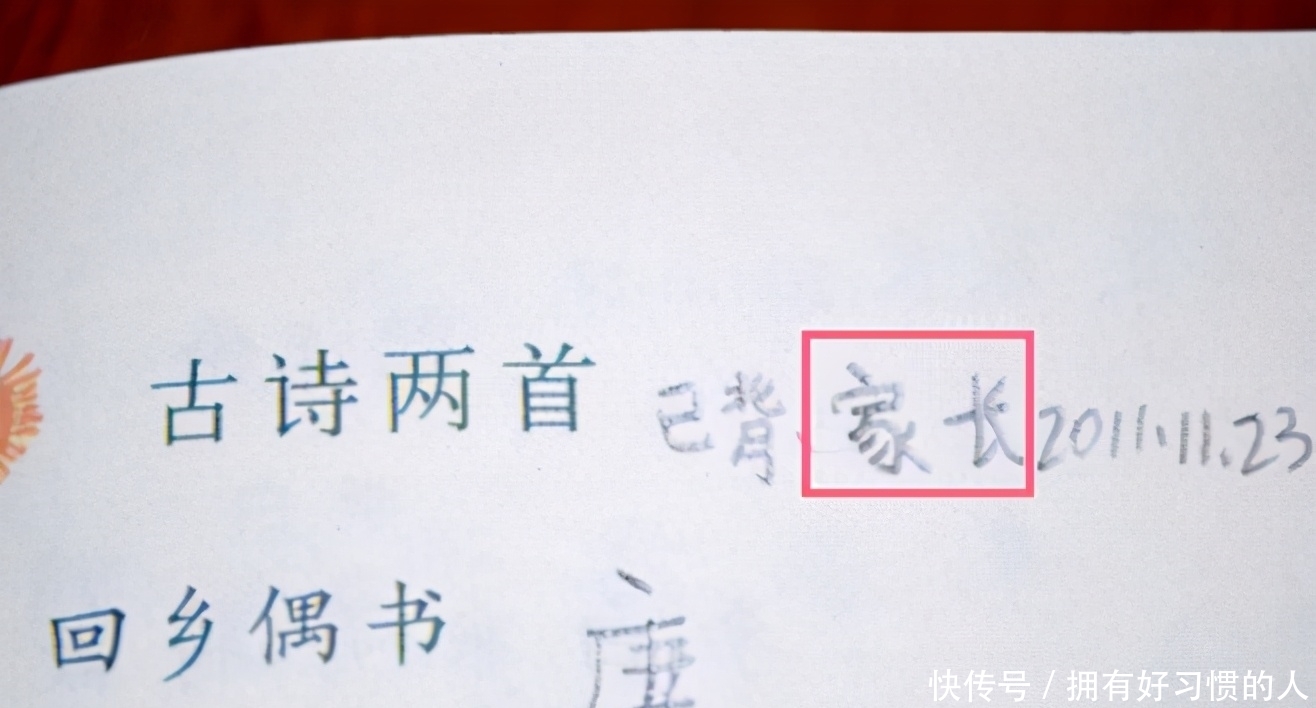 古诗两首 已背、家长2011.11.23
回乡偶书
快传号 / 拥有好习惯的人